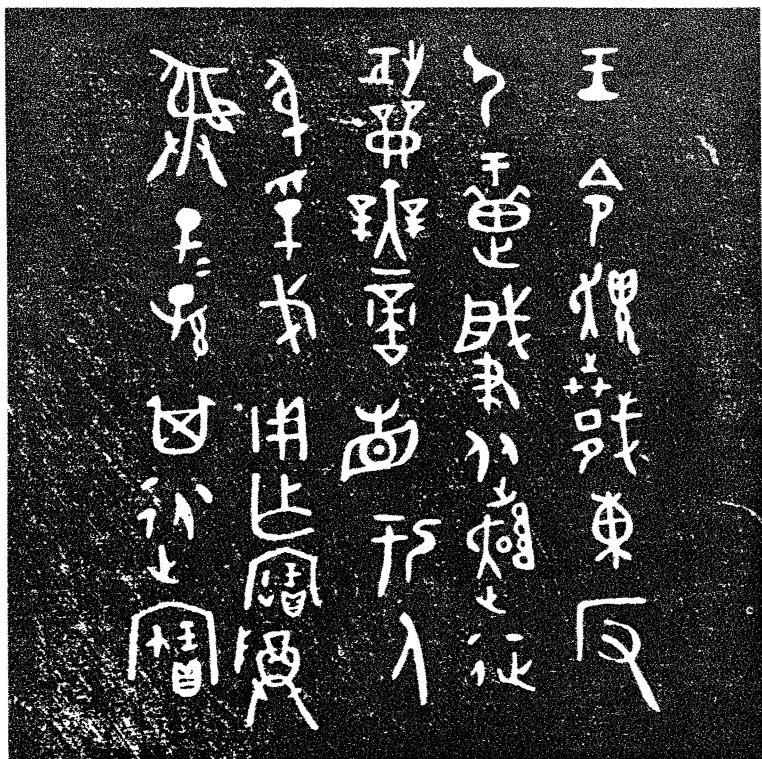 王令趞𢦏東反
尸疐肈從趞征
攻龠無啻省于人
身孚戈用乍寶尊
彝子=孫其永寶